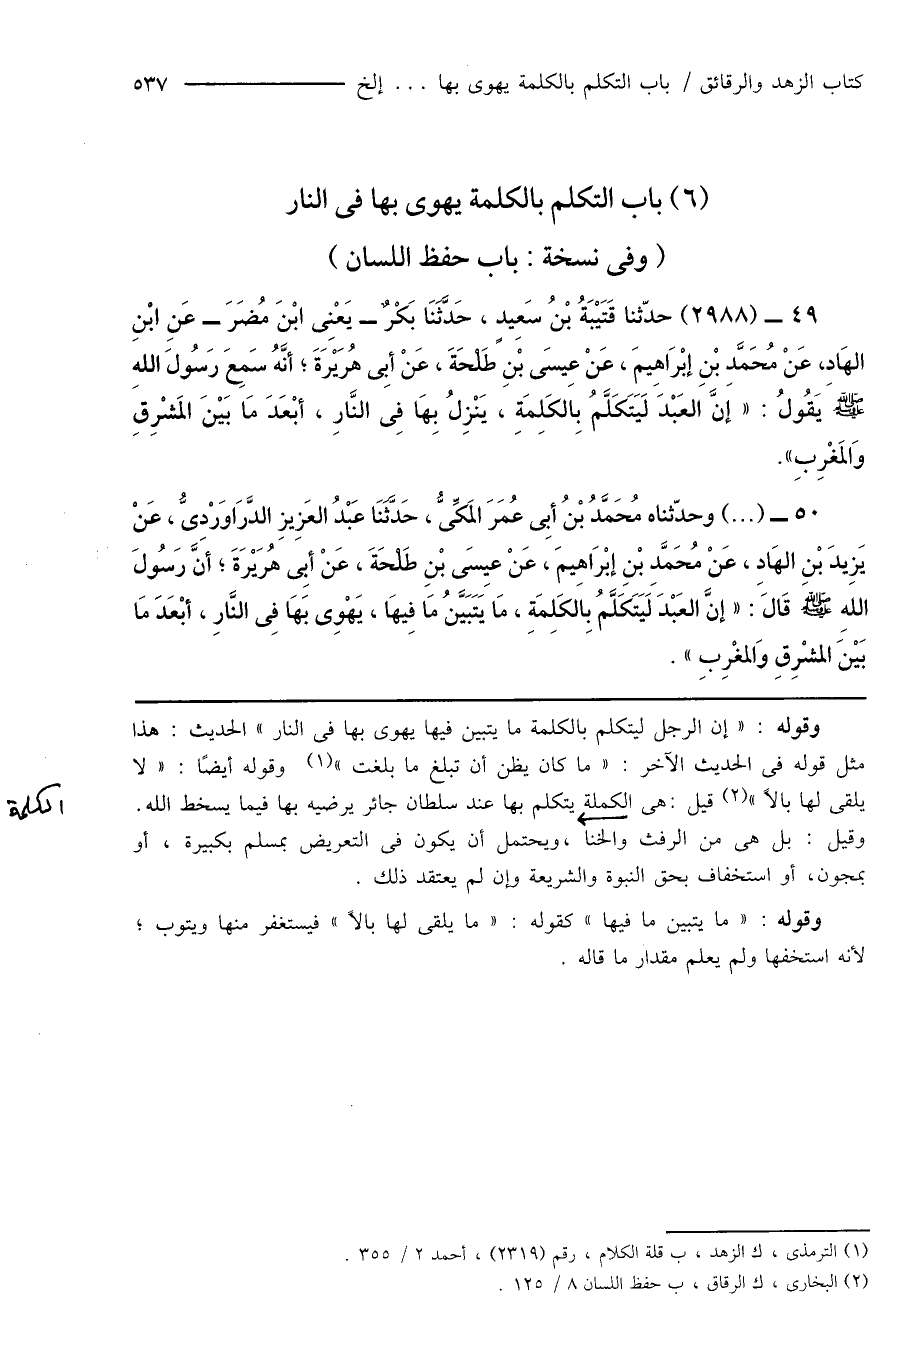 كتاب الزهد والرقائق / باب التكلم بالكلمة يهوى بها ... إلخ ــــــــــ ٥٣٧
(٦) باب التكلم بالكلمة يهوى بها فى النار
( وفى نسخة : باب حفظ اللسان )
٤٩ ــ (٢٩٨٨) حدّثنا قُتَيْبَةُ بْنُ سَعِيدٍ ، حَدَّثَنَا بَكْرٌ ــ يَعْنِى ابْنَ مُضَرَ ــ عَنِ ابْنِ
الهَادِ، عَنْ مُحَمَّدِ بْنِ إبْرَاهِيمَ ، عَنْ عِيسَى بْنِ طَلْحَةَ ، عَنْ أبِى هُرَيْرَةَ ؛ أنَّهُ سَمِعَ رَسُولَ الله
ﷺ يَقُولُ : « إنَّ العَبْدَ لَيَتَكَلَّمُ بِالكَلِمَةِ ، يَنْزِلُ بِهَا فِى النَّارِ ، أبْعَدَ مَا بَيْنَ المَشْرِقِ
وَالمَغْرِبِ».
٥٠ ــ (...) وحدّثناه مُحَمَّدُ بْنُ أبِى عُمَرَ المَكِّىُّ ، حَدَّثَنَا عَبْدُ العَزِيزِ الدَّرَاوَرْدِىُّ ، عَنْ
يَزِيدَ بْنِ الهَادِ ، عَنْ مُحَمَّدِ بْنِ إبْرَاهِيمَ ، عَنْ عِيسَى بْنِ طَلْحَةَ ، عَنْ أبِى هُرَيْرَةَ ؛ أنَّ رَسُولَ
اللهِ ﷺ قَالَ : « إنَّ العَبْدَ لَيَتَكَلَّمُ بِالكَلِمَةِ ، مَا يَتَبَيَّنُ مَا فِيهَا ، يَهْوِى بِهَا فِى النَّارِ ، أبْعَدَ مَا
بَيْنَ المشْرِقِ وَالمغْرِبِ » .
وقوله : « إن الرجل ليتكلم بالكلمة ما يتبين فيها يهوى بها فى النار » الحديث : هذا
مثل قوله فى الحديث الآخر : « ما كان يظن أن تبلغ ما بلغت »(١) وقوله أيضًا : « لا
يلقى لها بالاً »(٢) قيل :هى الكملة يتكلم بها عند سلطان جائر يرضيه بها فيما يسخط الله.
الكلمة
وقيل : بل هى من الرفث والخنا ،ويحتمل أن يكون فى التعريض بمسلم بكبيرة ، أو
بمجون، أو استخفاف بحق النبوة والشريعة وإن لم يعتقد ذلك .
وقوله : « ما يتبين ما فيها » كقوله : « ما يلقى لها بالاً » فيستغفر منها ويتوب ؛
لأنه استخفها ولم يعلم مقدار ما قاله .
(١) الترمذى ، ك الزهد ، ب قلة الكلام ، رقم (٢٣١٩) ، أحمد ٢ / ٣٥٥ .
(٢) البخارى ، ك الرقاق ، ب حفظ اللسان ٨ / ١٢٥ .